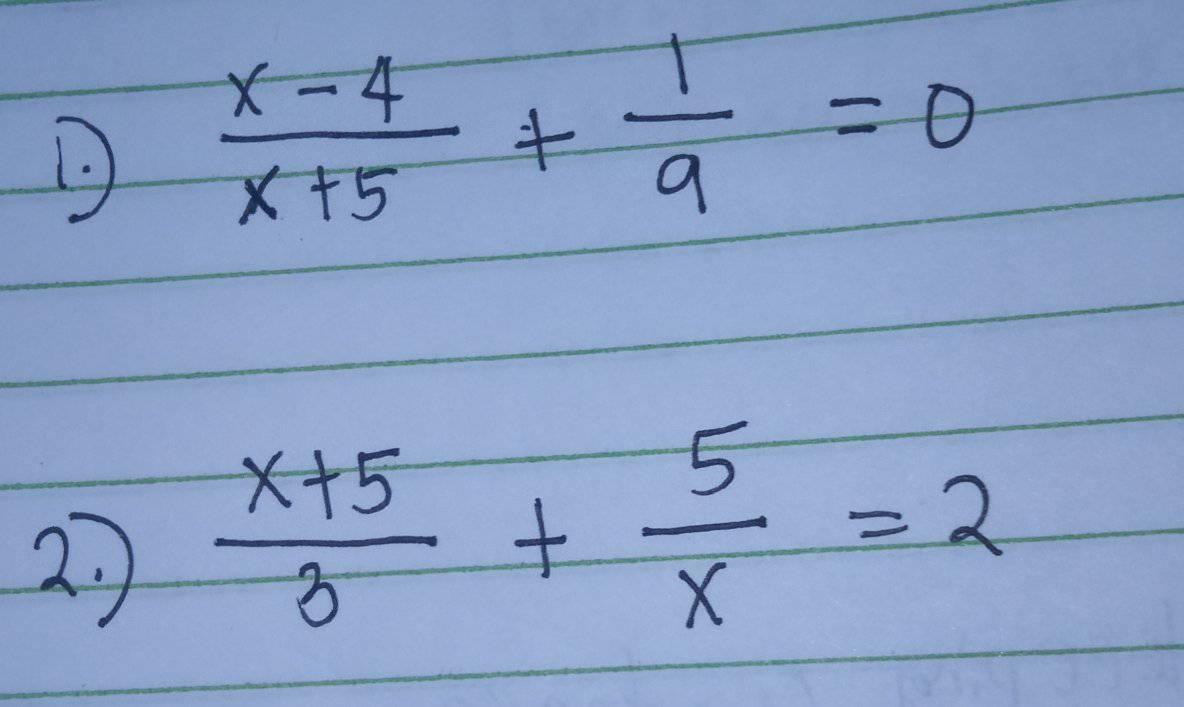 1.) \frac{x-4}{x+5} + \frac{1}{9} = 0
2.) \frac{x+5}{3} + \frac{5}{x} = 2